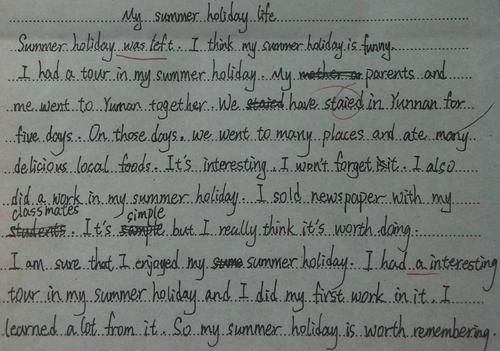 My summer holiday life
Summer holiday was left. I think my summer holiday is funny.
I had a tour in my summer holiday. My mother or parents and
me went to Yunnan together. We staied have staied in Yunnan for
five days. On those days, we went to many places and ate many
delicious local foods. It's interesting. I won't forget it. I also
did a work in my summer holiday. I sold newspaper with my
classmates simple
students. It's sample but I really think it's worth doing.
I am sure that I enjoyed my sume summer holiday. I had a interesting
tour in my summer holiday and I did my first work in it. I
learned a lot from it. So my summer holiday is worth remembering.